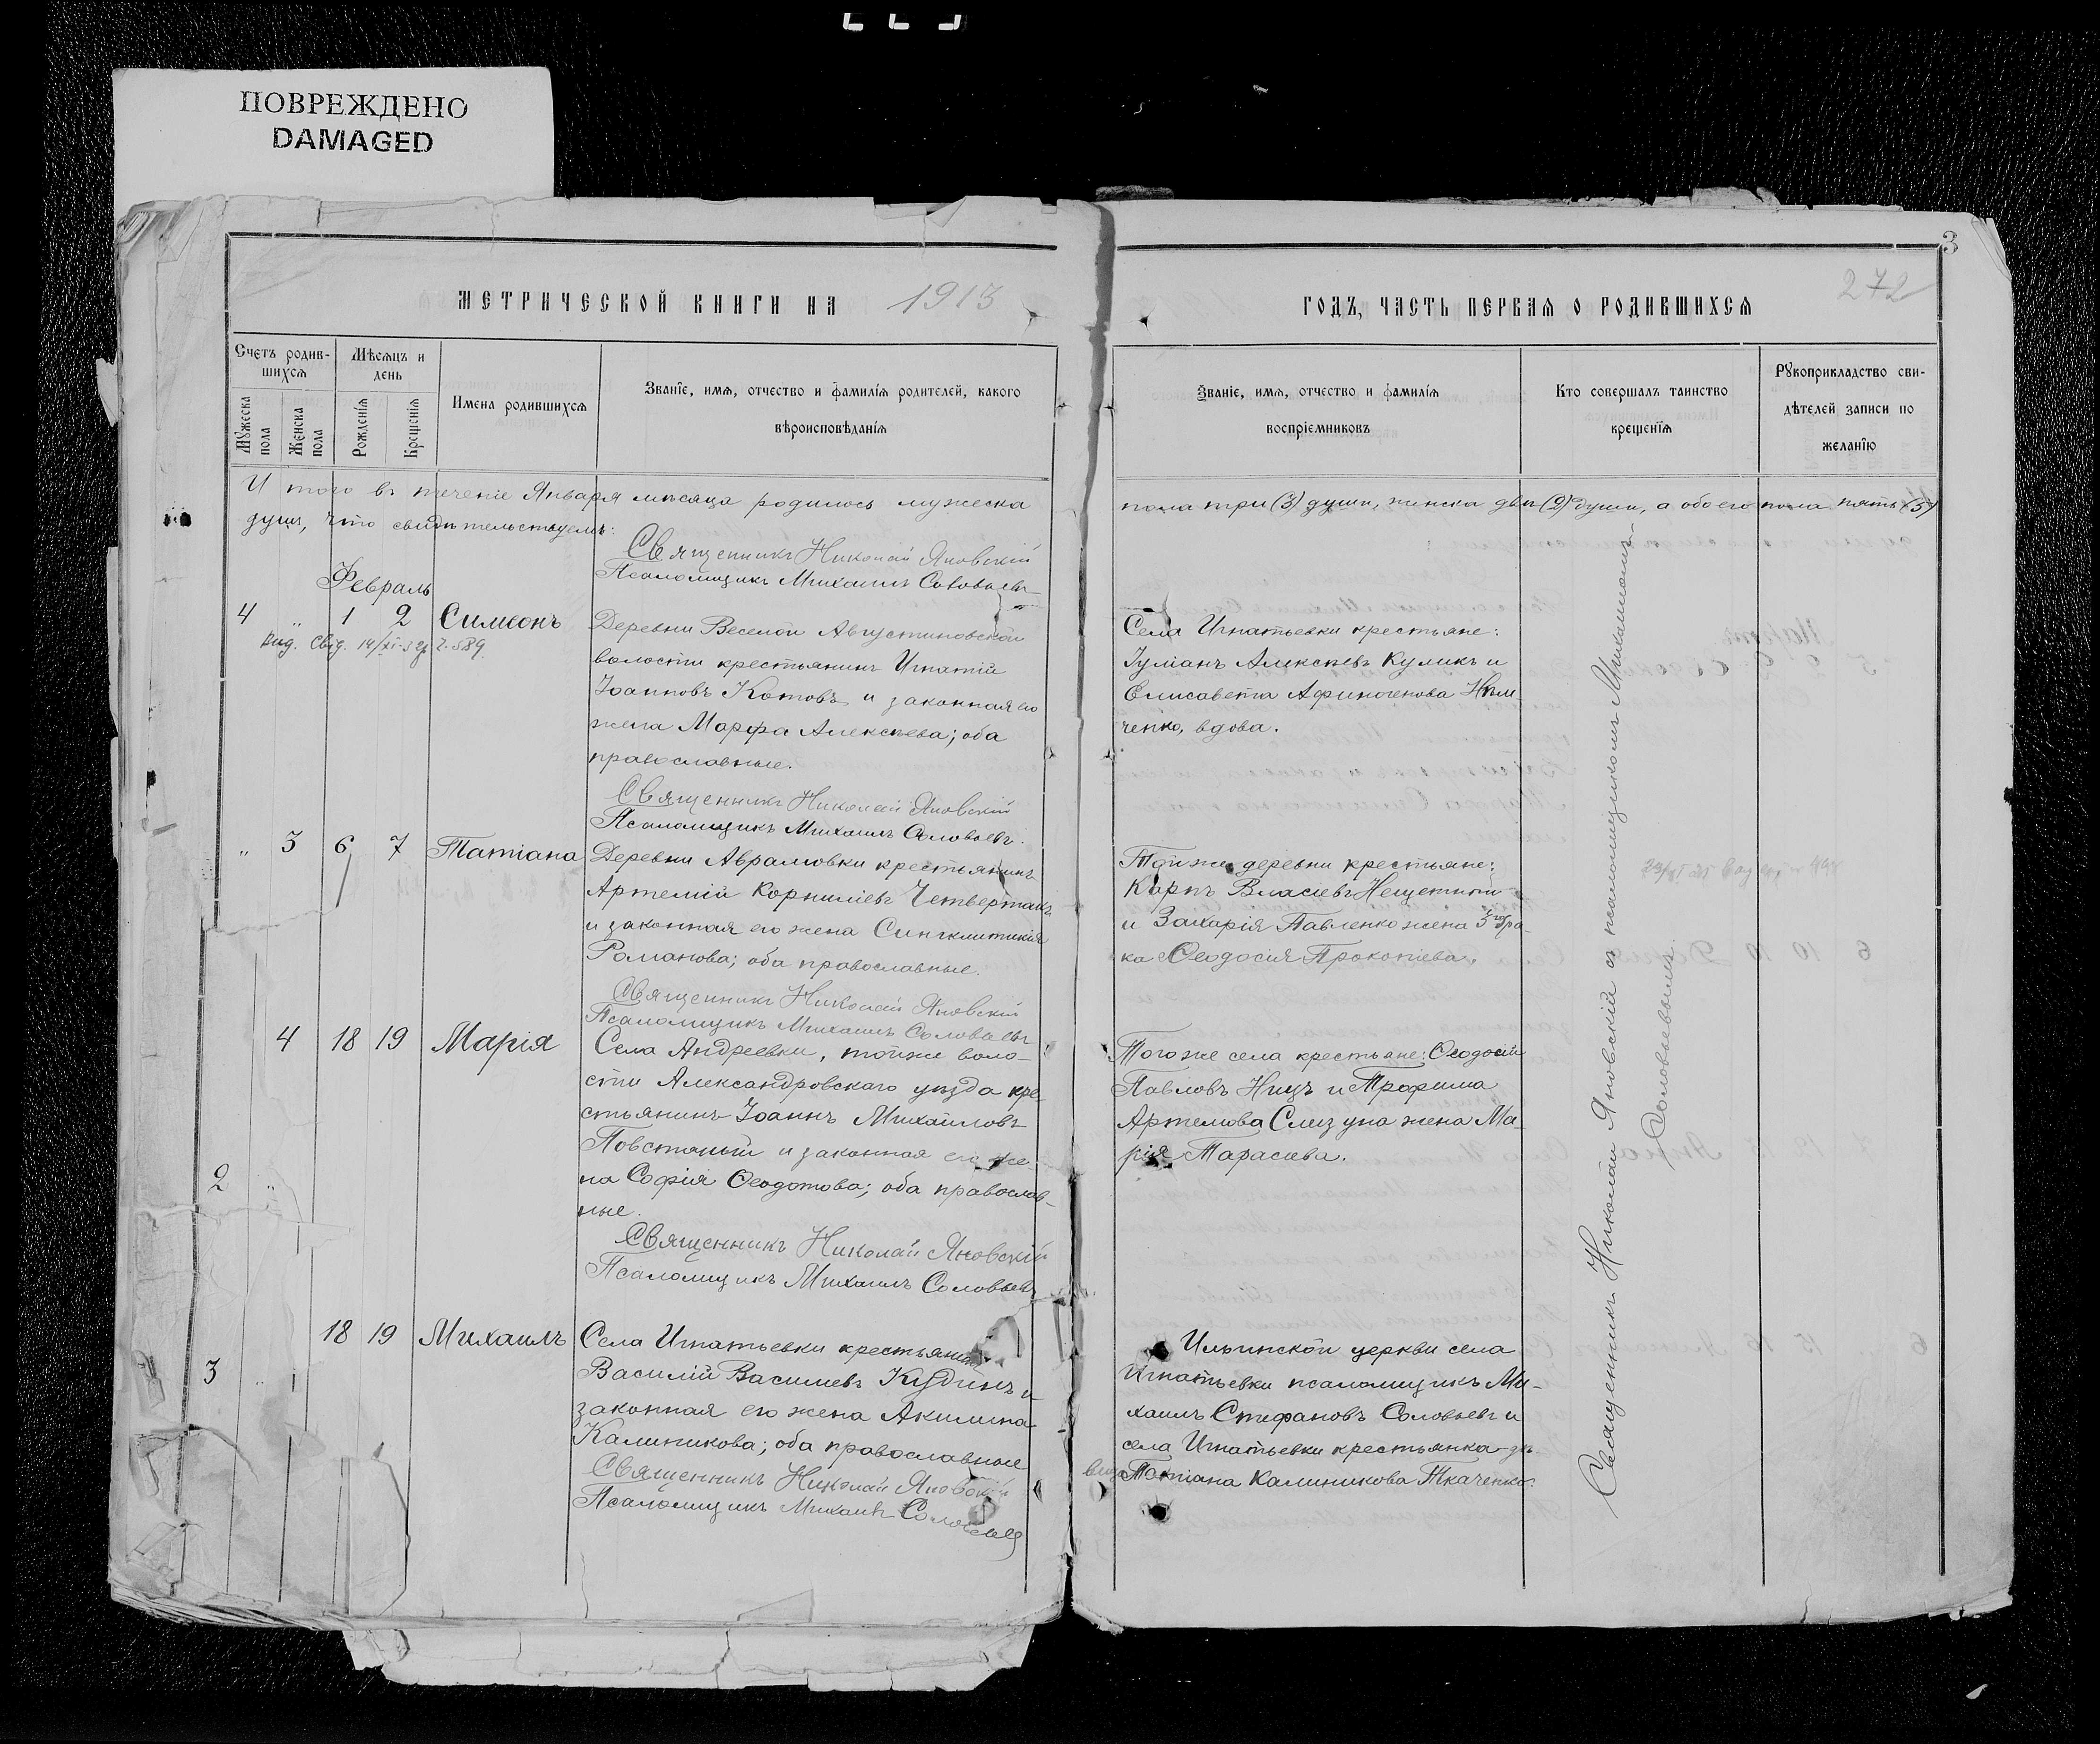 ПОВРЕЖДЕНО
DAMAGED
3
272
МЕТРИЧЕСКОЙ КНИГИ НА 1913
Счетъ родив-
шихся
Мѣсяцъ и
день
Мужеска
пола
Женска
пола
Рожденія
Крещенія
Имена родившихся
Званіе, имя, отчество и фамилія родителей, какого
вѣроисповѣданія
И того въ теченіе Января мѣсяца родилось мужеска
душъ, что свидѣтельствуемъ:
Священникъ Николай Яновскій
Псаломщикъ Михаилъ Соловьевъ
Февраль
4 „ 1 2 Симеонъ
Вид. Свід. 14/XI-32 г. 589
Деревни Веселой Августиновской
волости крестьянинъ Игнатій
Іоанновъ Котовъ и законная его
жена Марфа Алексѣева; оба
православные.
Священникъ Николай Яновскій
Псаломщикъ Михаилъ Соловьевъ.
„ 3 6 7 Татіана
Деревни Аврамовки крестьянинъ
Артемій Корниліевъ Четвертакъ
и законная его жена Синклитикія
Романова; оба православные.
Священникъ Николай Яновскій
Псаломщикъ Михаилъ Соловьевъ
4 18 19 Марія
Села Андреевки, тойже воло-
сти Александровскаго уѣзда кре
стьянинъ Іоаннъ Михаиловъ
Повстяный и законная его же
на Софія Ѳеодотова; оба православ-
ные.
Священникъ Николай Яновскій
Псаломщикъ Михаилъ Соловьевъ
2 „
18 19 Михаилъ
3 „
Села Игнатьевки крестьянинъ
Василій Васильевъ Кудинъ и
законная его жена Акилина
Калиникова; оба православные
Священникъ Николай Яновскій
Псаломщикъ Михаилъ Соловьевъ
ГОДЪ, ЧАСТЬ ПЕРВАЯ О РОДИВШИХСЯ
Званіе, имя, отчество и фамилія
воспріемниковъ
Кто совершалъ таинство
крещенія
Рукоприкладство сви-
дѣтелей записи по
желанію
пола три (3) души, женска двѣ (2) души, а обоего пола пять (5)
Села Игнатьевки крестьяне:
Іуліанъ Алексѣевъ Куликъ и
Елисавета Афиногенова Нѣм
ченко, вдова.
Тойже деревни крестьяне:
Карпъ Власіевъ
и Захарія Павленко жена 3го бра-
ка Ѳеодосія Прокопіева.
Того же села крестьяне: Ѳеодосій
Павловъ Ницъ и Трофима
Артемова Слизуна жена Ма-
рія Тарасіева.
Ильинской церкви села
Игнатьевки псаломщикъ Ми-
хаилъ Стефановъ Соловьевъ и
села Игнатьевки крестьянка дѣ
вица Татіана Калиникова Ткаченко.
Священникъ Николай Яновскій съ псаломщикомъ Михаиломъ
Соловьевымъ.